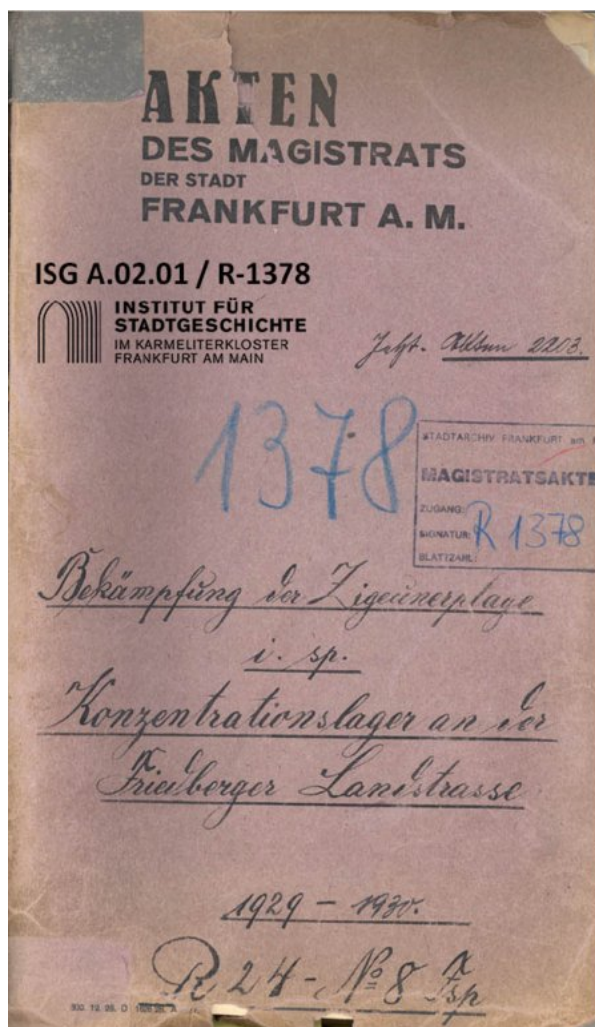 AKTEN
DES MAGISTRATS
DER STADT
FRANKFURT A. M.
ISG A.02.01 / R-1378
INSTITUT FÜR
STADTGESCHICHTE
IM KARMELITERKLOSTER
FRANKFURT AM MAIN
Jetzt. Akten 2203.
1378
STADTARCHIV FRANKFURT am
MAGISTRATSAKTE
ZUGANG:
SIGNATUR: R 1378
BLATTZAHL:
Bekämpfung der Zigeunerplage
i. sp.
Konzentrationslager an der
Friedberger Landstrasse
1929 – 1930.
R 24 - № 8